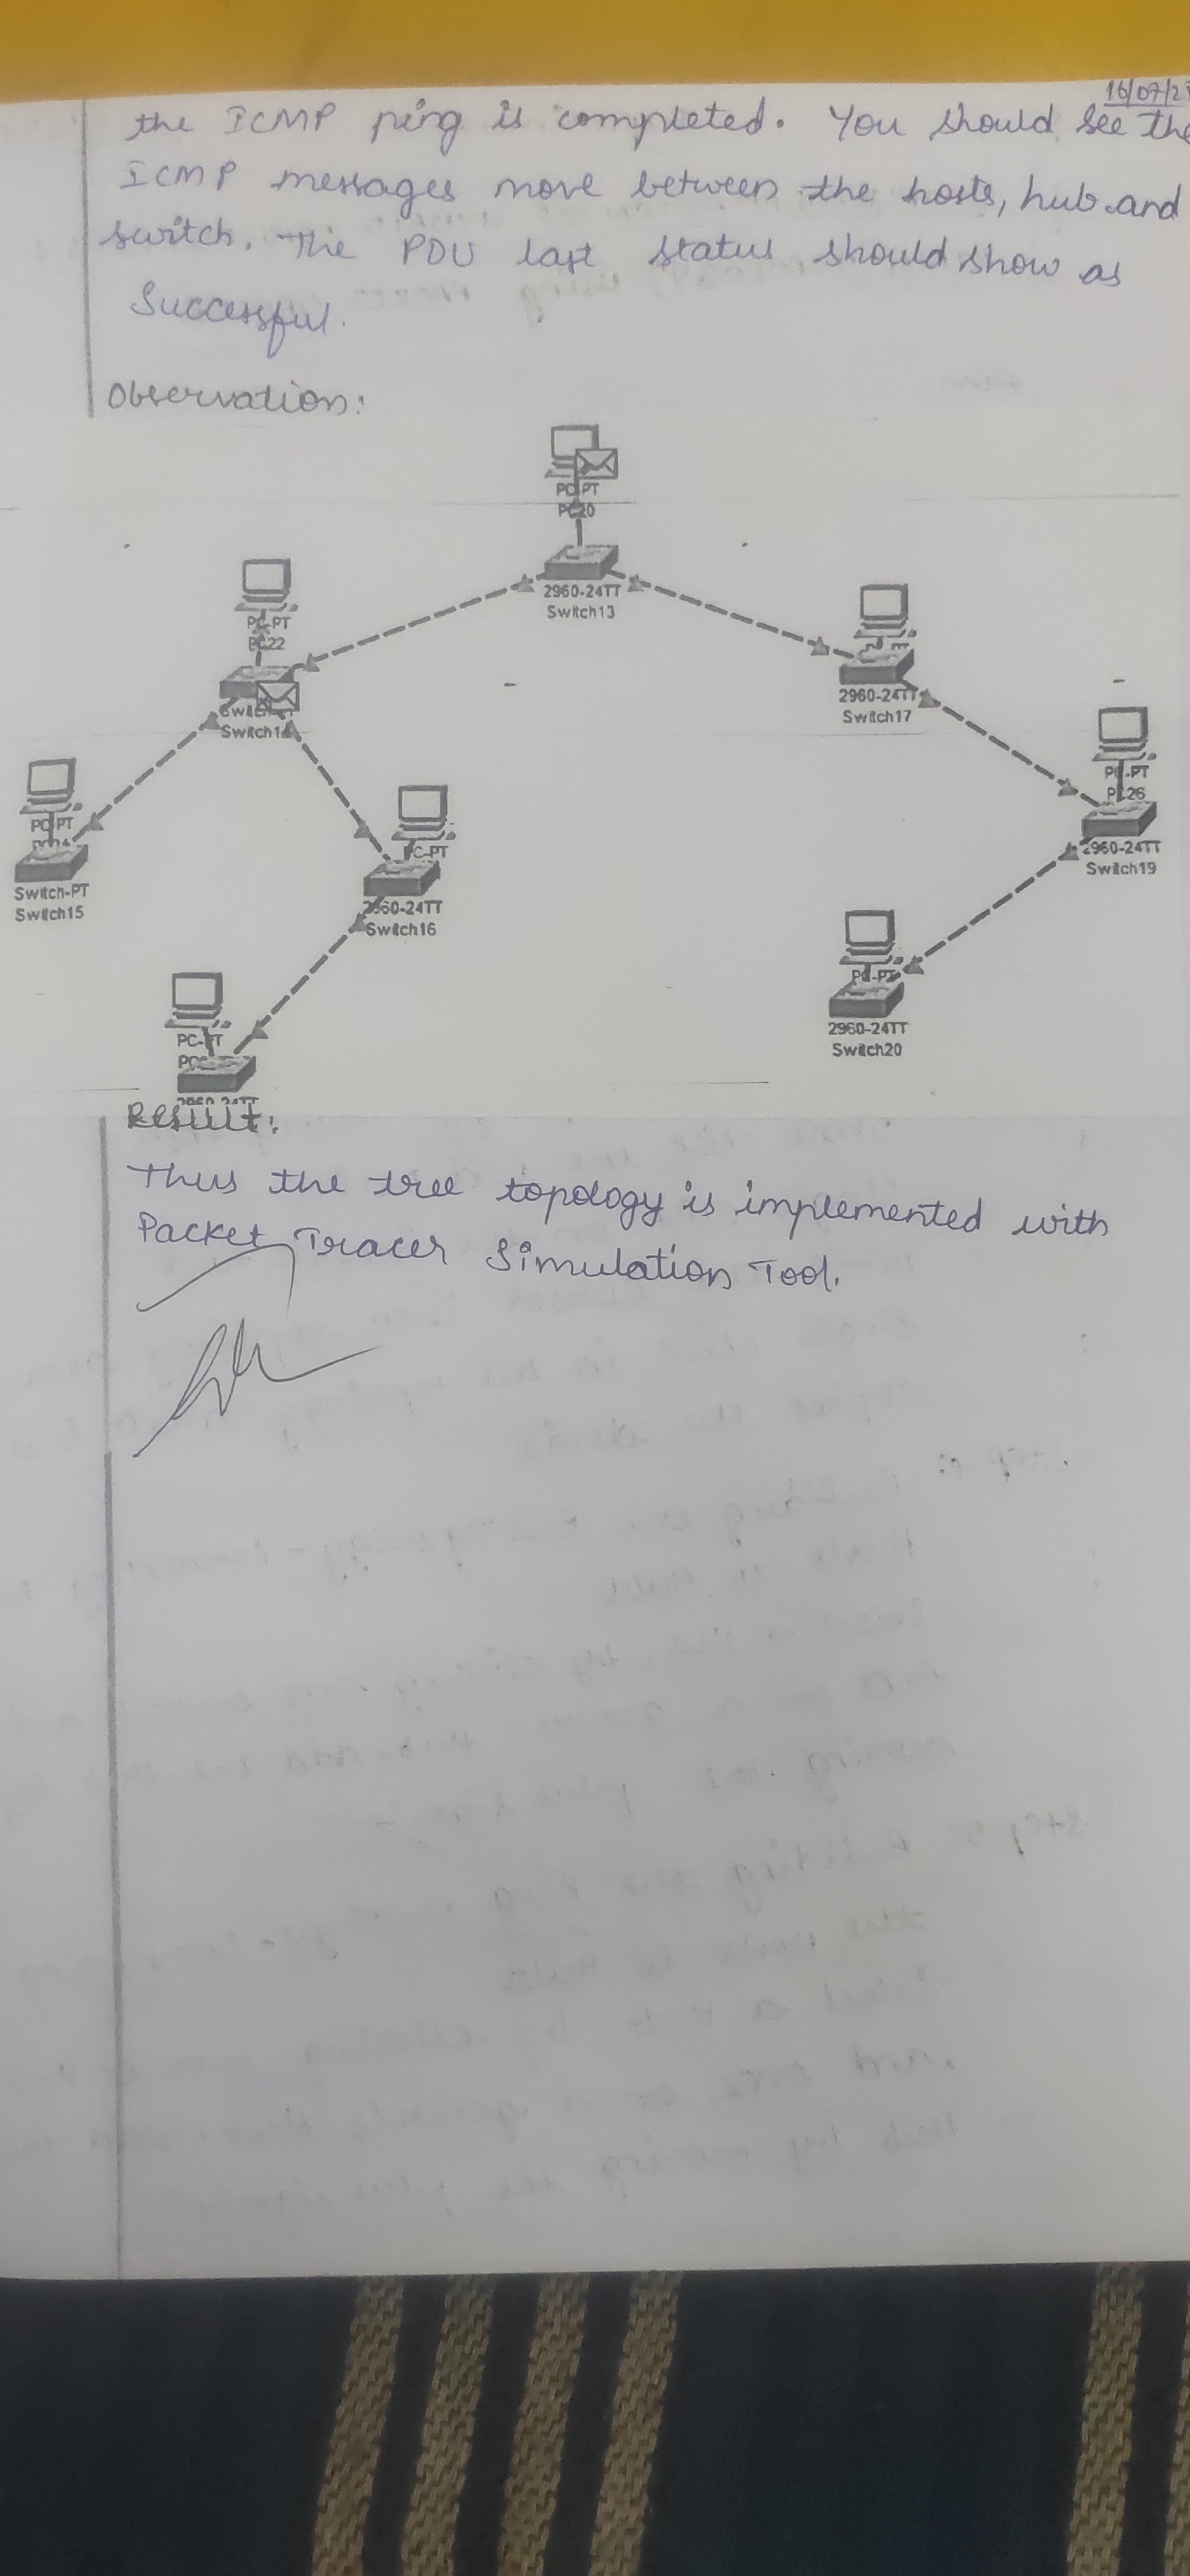 16/07/2
the ICMP ping is completed. You should see the
ICMP messages move between the hosts, hub and
switch. The PDU last status should show as
Successful.
Observation:
PC-PT
PC20
2960-24TT
Switch13
PC-PT
PC22
Switch
2960-24TT
Switch17
PC-PT
PC26
2960-24TT
Switch19
PC-PT
Switch-PT
Switch15
PC-PT
2960-24TT
Switch16
PC-PT
2960-24TT
Switch20
PC-PT
2960-24TT
Result:
Thus the tree topology is implemented with
Packet Tracer Simulation Tool.